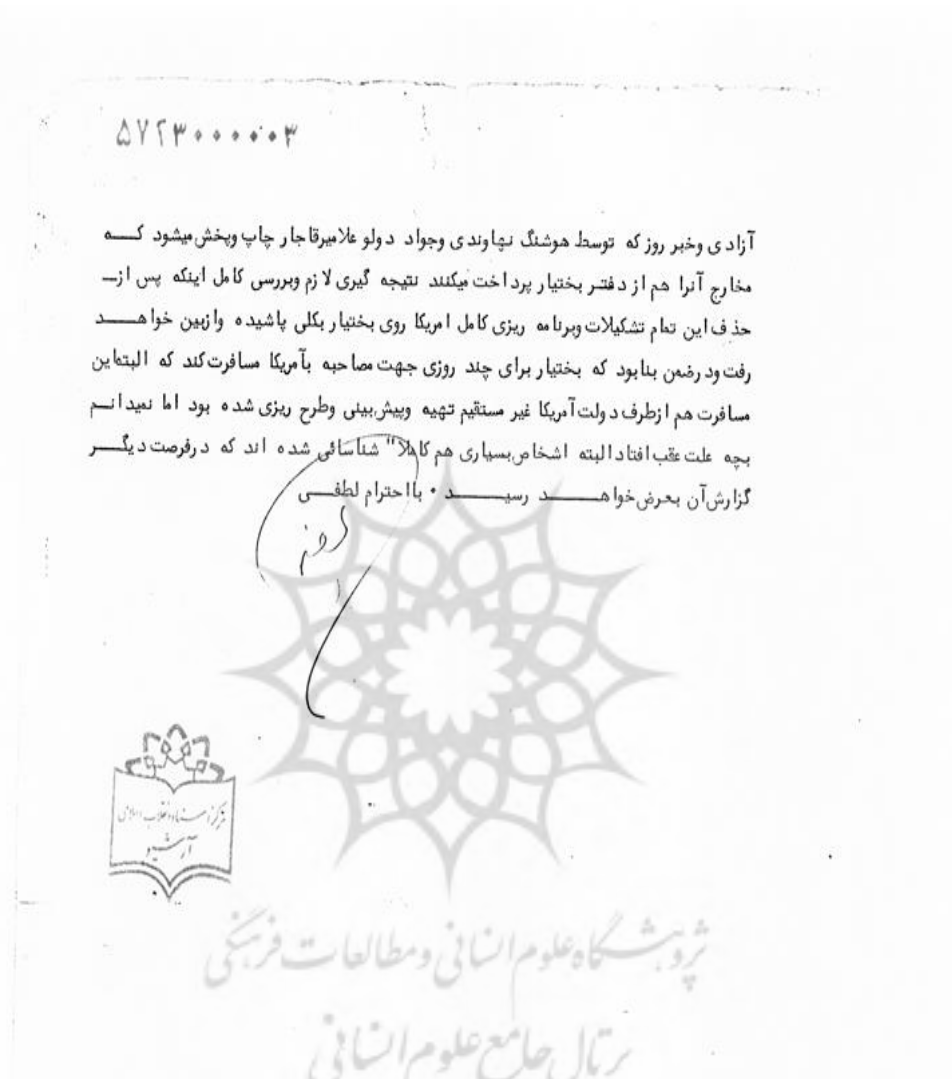 ۵۷۲۳۰۰۰۰۰۳
آزادی وخبر روز که توسط هوشنگ نهاوندی وجواد دولو غلامیرقاجار چاپ وپخش میشود کـــه
مخارج آنرا هم از دفتـر بختیار پرداخت میکنند نتیجه گیری لازم وبررسی کامل اینکه پس ازـ
حذف این تمام تشکیلات وبرنامه ریزی کامل امریکا روی بختیار بکلی پاشیده وازبین خواهـــد
رفت ودرضمن بنابود که بختیار برای چند روزی جهت مصاحبه بآمریکا مسافرت کند که البته این
مسافرت هم ازطرف دولت آمریکا غیر مستقیم تهیه وپیش بینی وطرح ریزی شده بود اما نمیدانـــم
بچه علت عقب افتاد البته اشخاص بسیاری هم کاملا" شناسائی شده اند که درفرصت دیگـــر
گزارش آن بعرض خواهـــــد رسیـــــد ۰ بااحترام لطفـــی
مرکز اسناد انقلاب اسلامی
آرشیو
پژوهشگاه علوم انسانی و مطالعات فرهنگی
پرتال جامع علوم انسانی